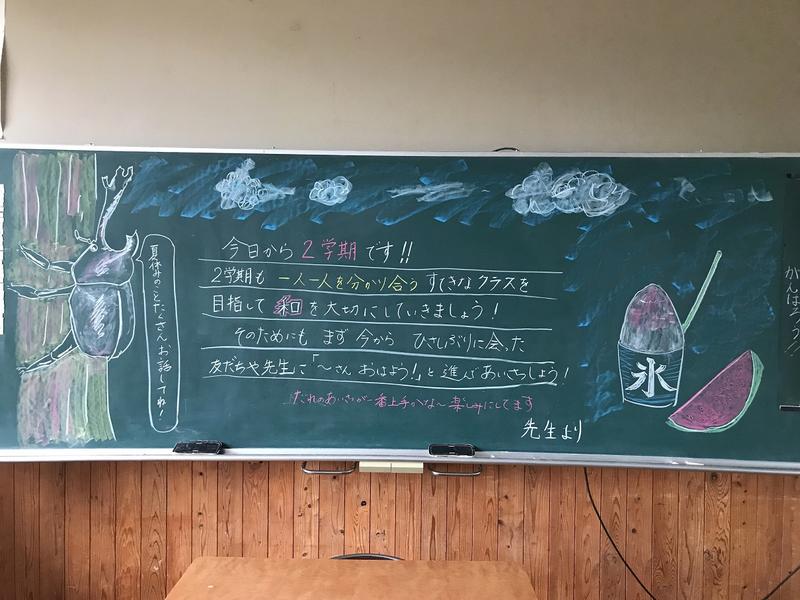 今日から2学期です!!
2学期も 一人一人を分かり合う すてきなクラスを
目指して 和 を大切にしていきましょう!
そのためにも まず 今から ひさしぶりに会った
友だちや先生に「〜さん おはよう!」と進んであいさつしよう!
だれのあいさつが一番上手かな〜 楽しみにしてます
先生より
夏休みのことたくさんお話してね!
氷
がんばろう!!